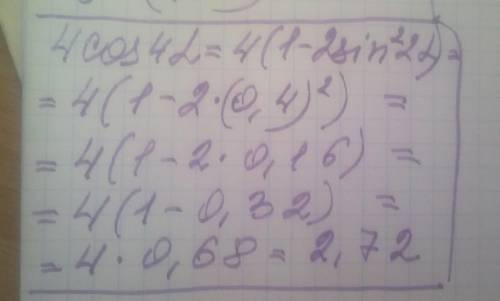 4cos4α = 4(1-2sin²2α) =
= 4(1-2·(0,4)²) =
= 4(1-2·0,16) =
= 4(1-0,32) =
= 4·0,68 = 2,72